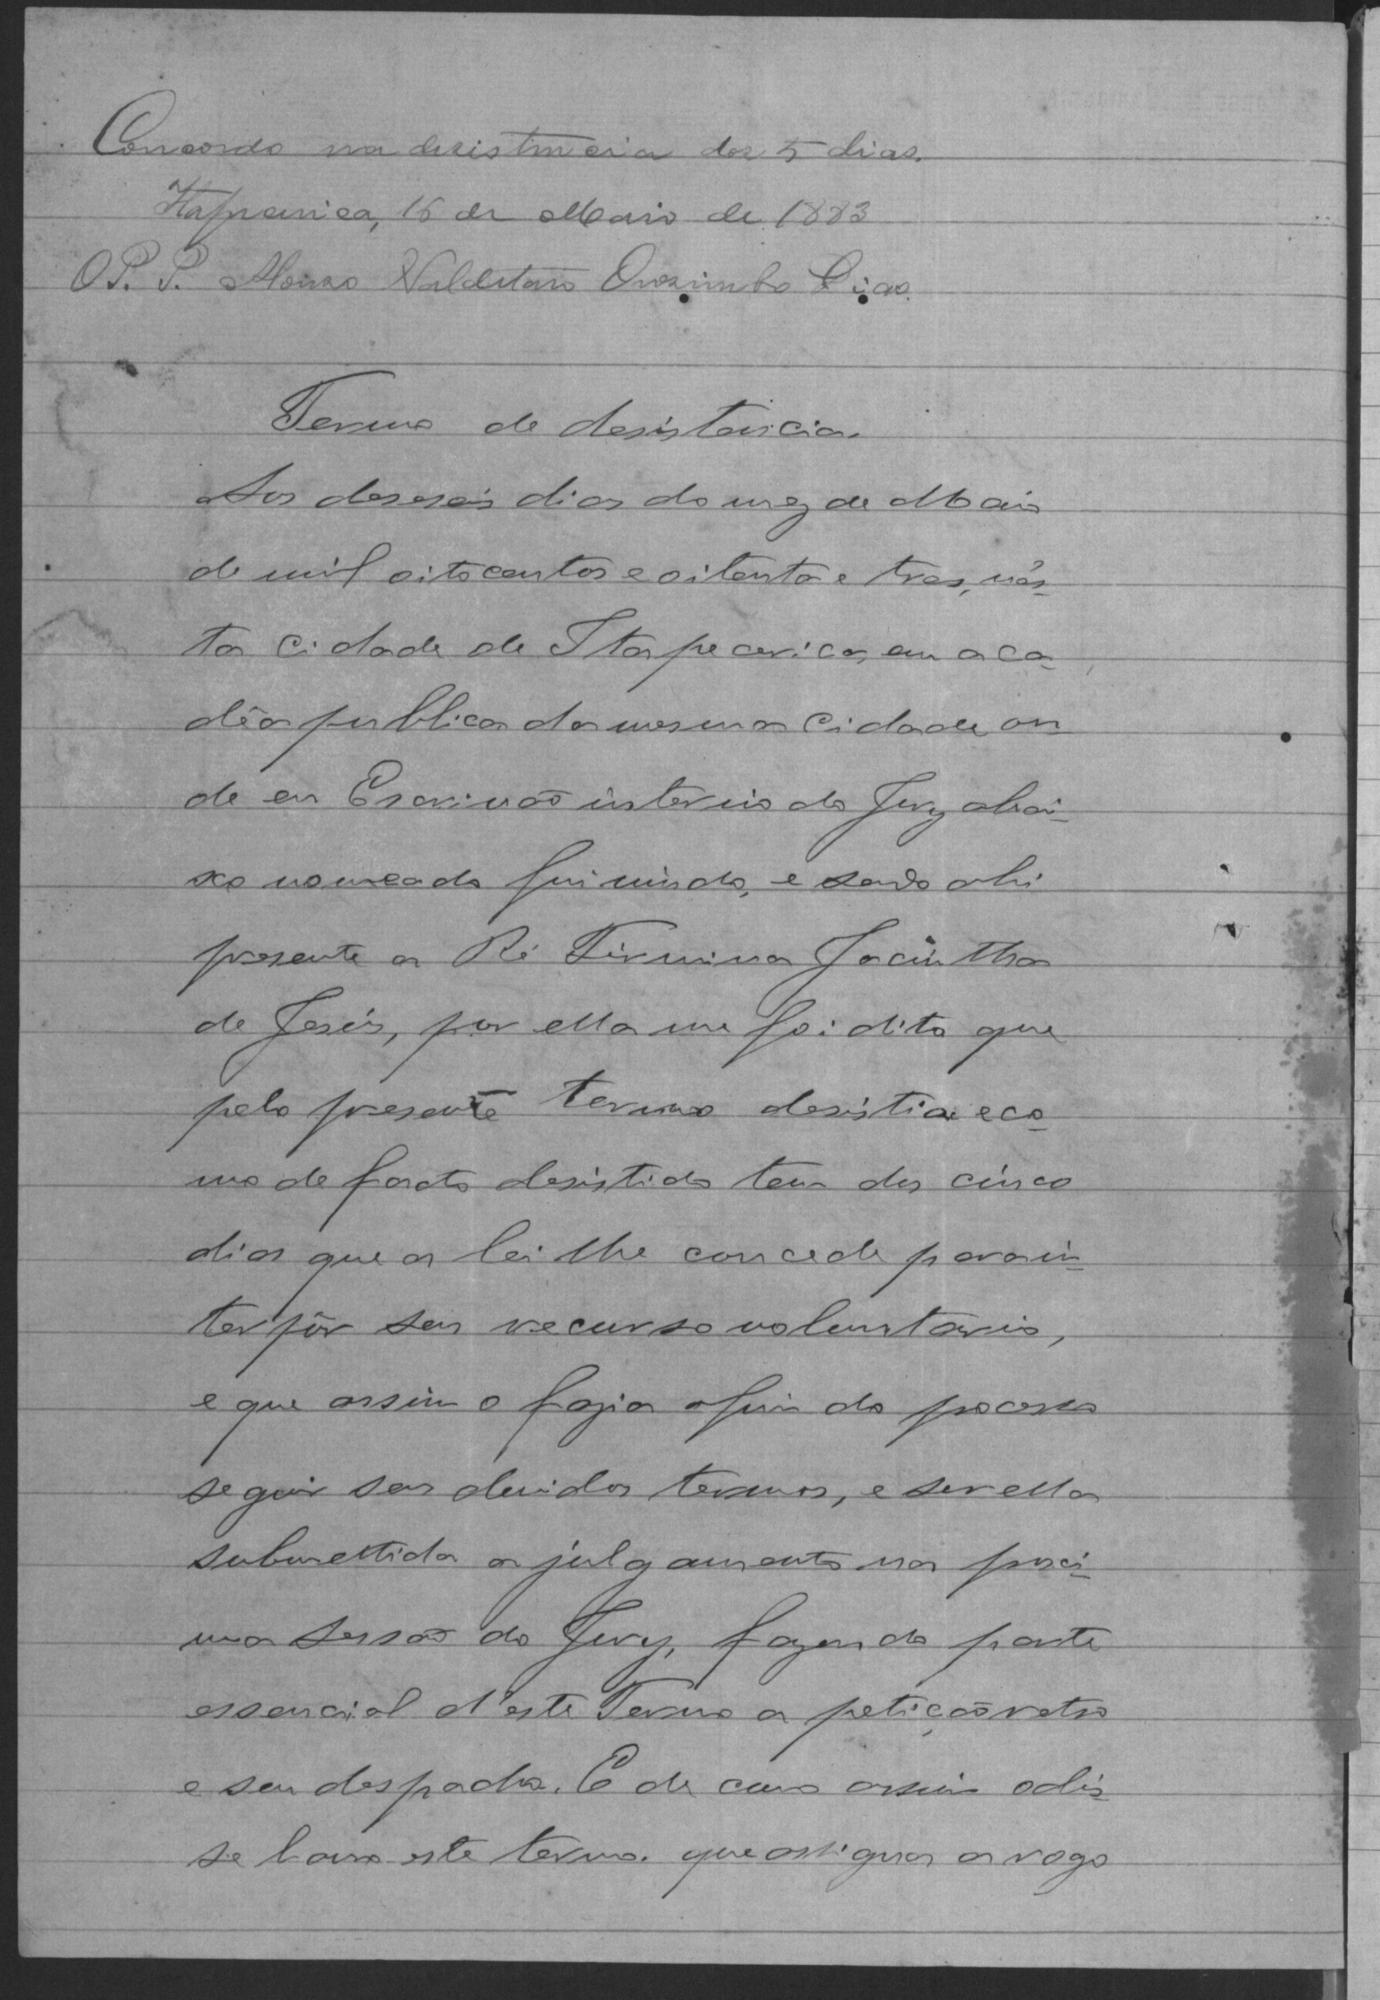 Concordo na desistencia dos 5 dias.
Itapecerica, 16 de Maio de 1883
O P. P. Valdetaro Orozimbo Dias.
Termo de desistencia.
Aos deseseis dias do mez de Maio
de mil oitocentos e oitenta e tres, nés-
ta cidade de Itapecerica, em a ca-
dêa publica da mesma cidade on-
de eu Escrivão interino do Jury abai-
xo nomeado fui vindo, e sendo ahi
presente a Ré Firmina Jacintha
de Jesús, por ella me foi dito que
pelo presente termo desistia e co-
mo de facto desistido tem dos cinco
dias que a lei lhe concede para in-
terpôr seu recurso voluntario,
e que assim o fazia afim do pocesso
seguir seus devidos termos, e ser ella
submettida a julgamento na proxi-
ma sessão do Jury, fazendo parte
essencial d'este Termo a petição retro
e seu despacho. E de como assim o dis-
se lavro este termo. que assigna a rogo